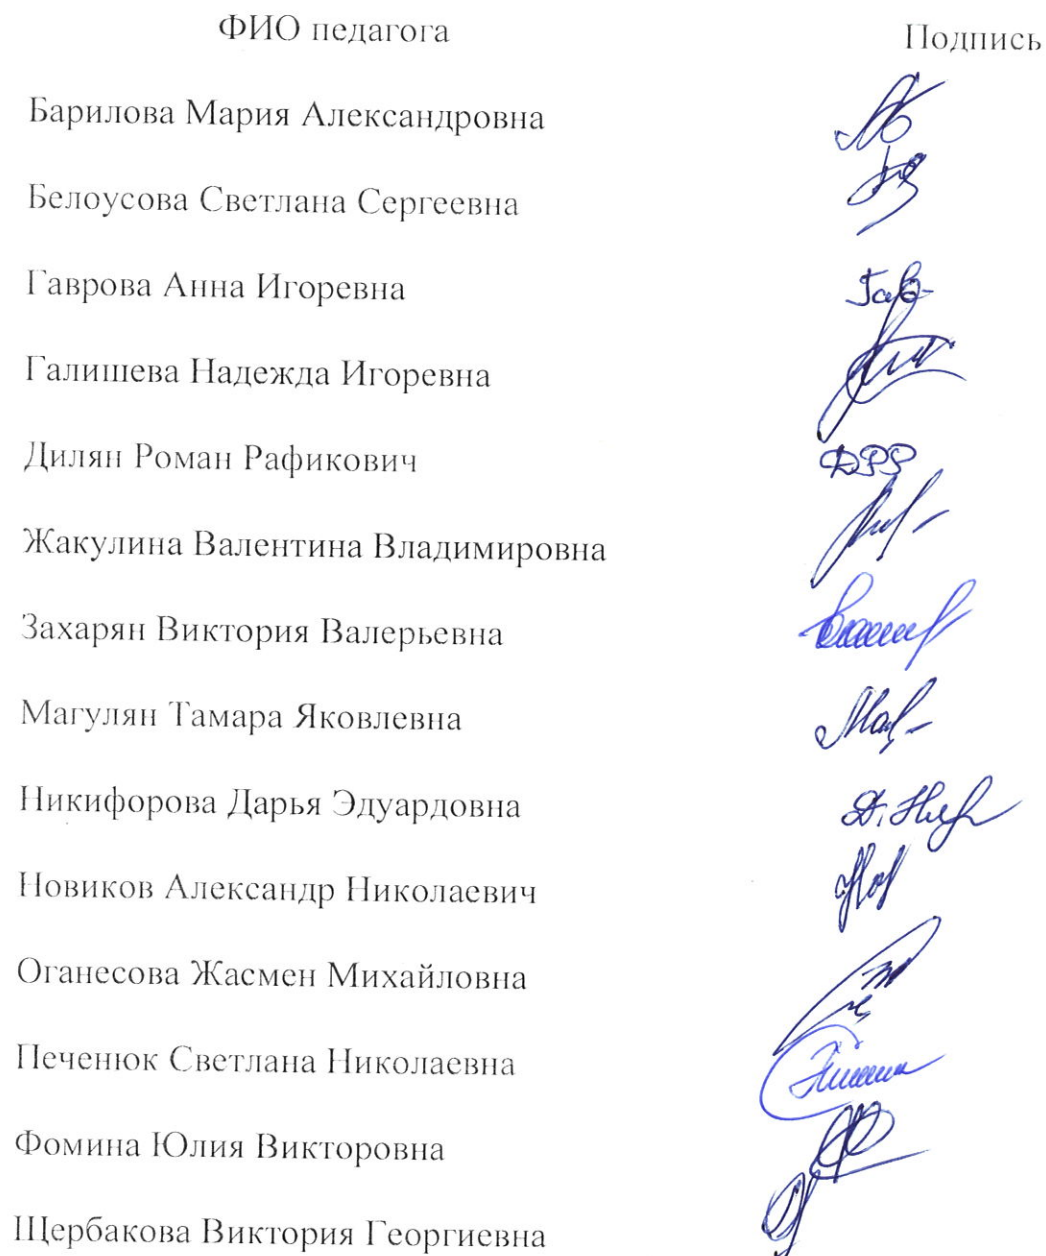 ФИО педагога Подпись
Барилова Мария Александровна
Белоусова Светлана Сергеевна
Гаврова Анна Игоревна Гав-
Галишева Надежда Игоревна
Дилян Роман Рафикович ДРР
Жакулина Валентина Владимировна
Захарян Виктория Валерьевна
Магулян Тамара Яковлевна
Никифорова Дарья Эдуардовна
Новиков Александр Николаевич
Оганесова Жасмен Михайловна
Печенюк Светлана Николаевна
Фомина Юлия Викторовна
Щербакова Виктория Георгиевна